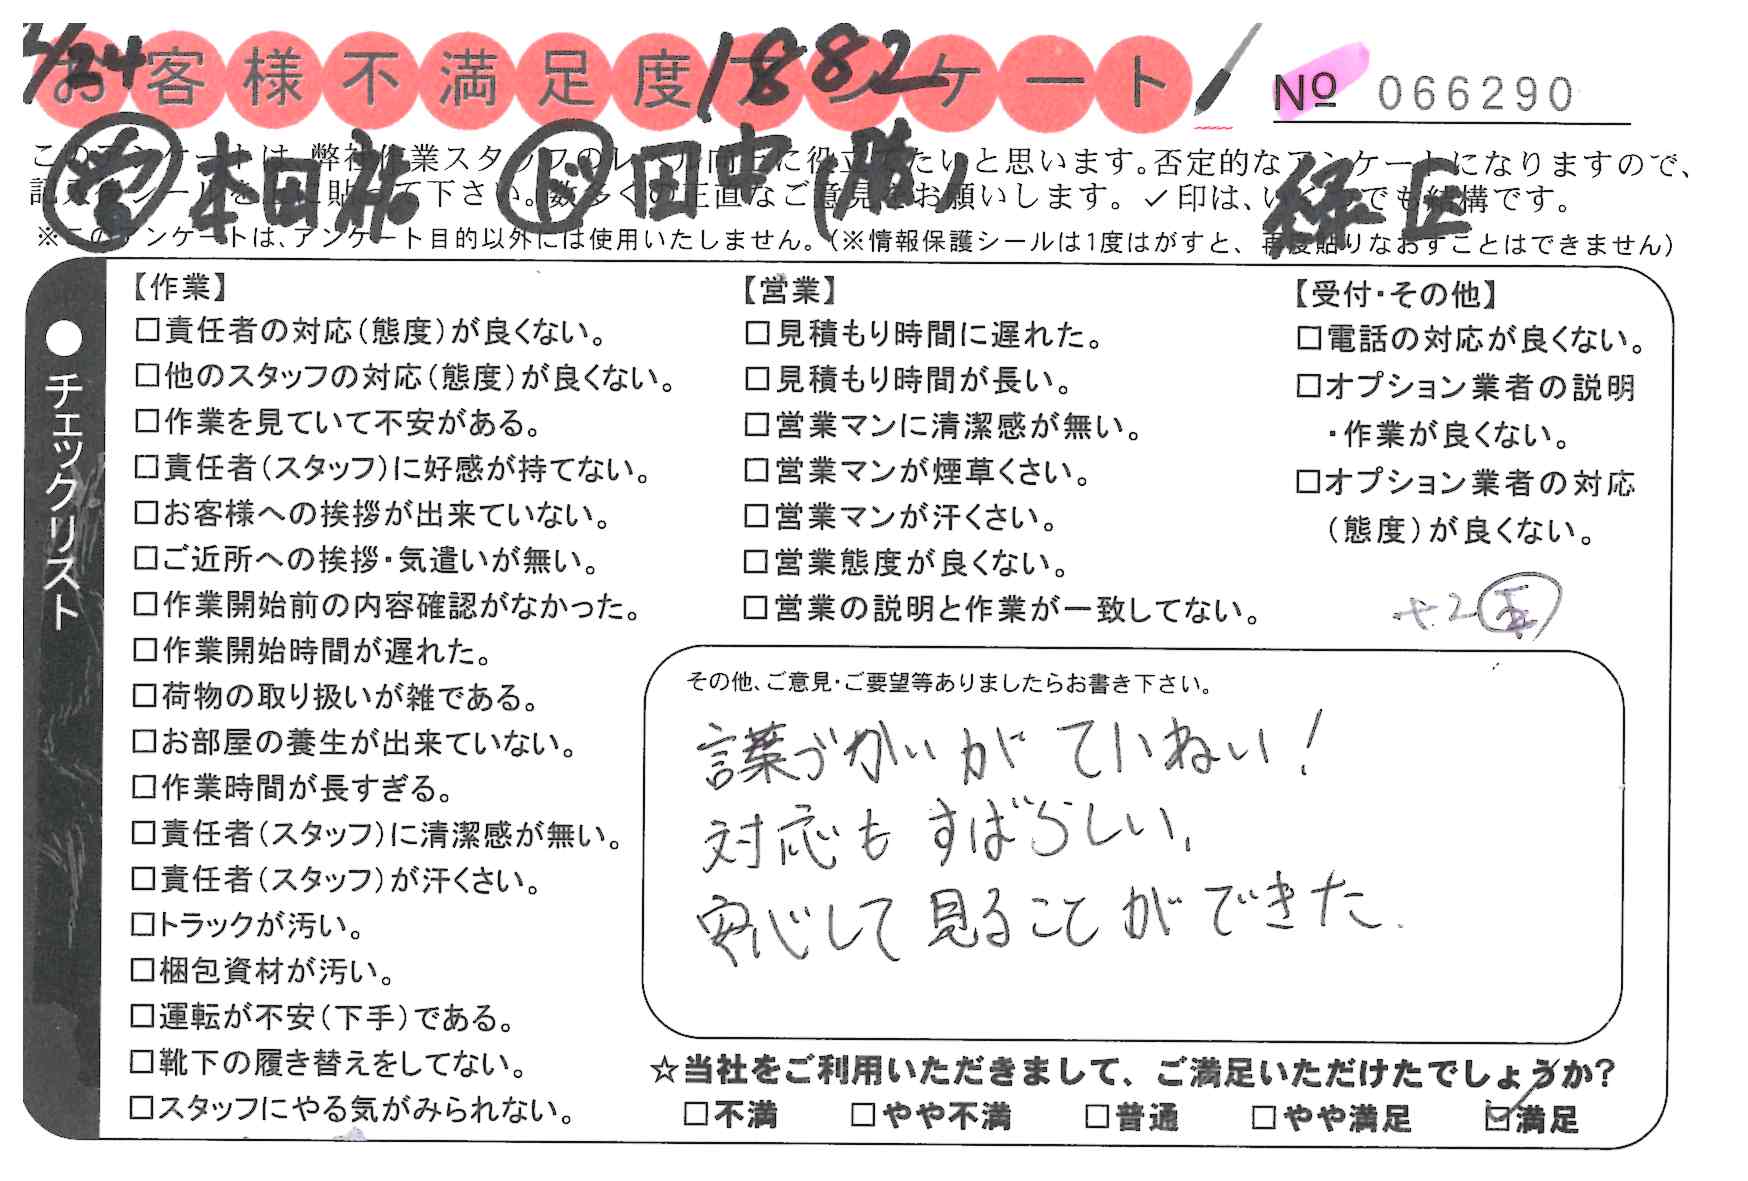 /24 1882
お客様不満足度アンケート
№ 066290
営 本田祐 ド 田中(勝) 緑区
このアンケートは、弊社作業スタッフのレベル向上に役立てたいと思います。否定的なアンケートになりますので、
記入後シールを上に貼って下さい。数多くの正直なご意見をお願いします。✓印は、いくつでも結構です。
※このアンケートは、アンケート目的以外には使用いたしません。(※情報保護シールは1度はがすと、再度貼りなおすことはできません)
●チェックリスト
【作業】
□責任者の対応(態度)が良くない。
□他のスタッフの対応(態度)が良くない。
□作業を見ていて不安がある。
□責任者(スタッフ)に好感が持てない。
□お客様への挨拶が出来ていない。
□ご近所への挨拶・気遣いが無い。
□作業開始前の内容確認がなかった。
□作業開始時間が遅れた。
□荷物の取り扱いが雑である。
□お部屋の養生が出来ていない。
□作業時間が長すぎる。
□責任者(スタッフ)に清潔感が無い。
□責任者(スタッフ)が汗くさい。
□トラックが汚い。
□梱包資材が汚い。
□運転が不安(下手)である。
□靴下の履き替えをしてない。
□スタッフにやる気がみられない。
【営業】
□見積もり時間に遅れた。
□見積もり時間が長い。
□営業マンに清潔感が無い。
□営業マンが煙草くさい。
□営業マンが汗くさい。
□営業態度が良くない。
□営業の説明と作業が一致してない。
【受付・その他】
□電話の対応が良くない。
□オプション業者の説明
・作業が良くない。
□オプション業者の対応
(態度)が良くない。
+2
その他、ご意見・ご要望等ありましたらお書き下さい。
言葉づかいがていねい!
対応もすばらしい、
安心して見ることができた.
☆当社をご利用いただきまして、ご満足いただけたでしょうか?
□不満 □やや不満 □普通 □やや満足 ☑満足